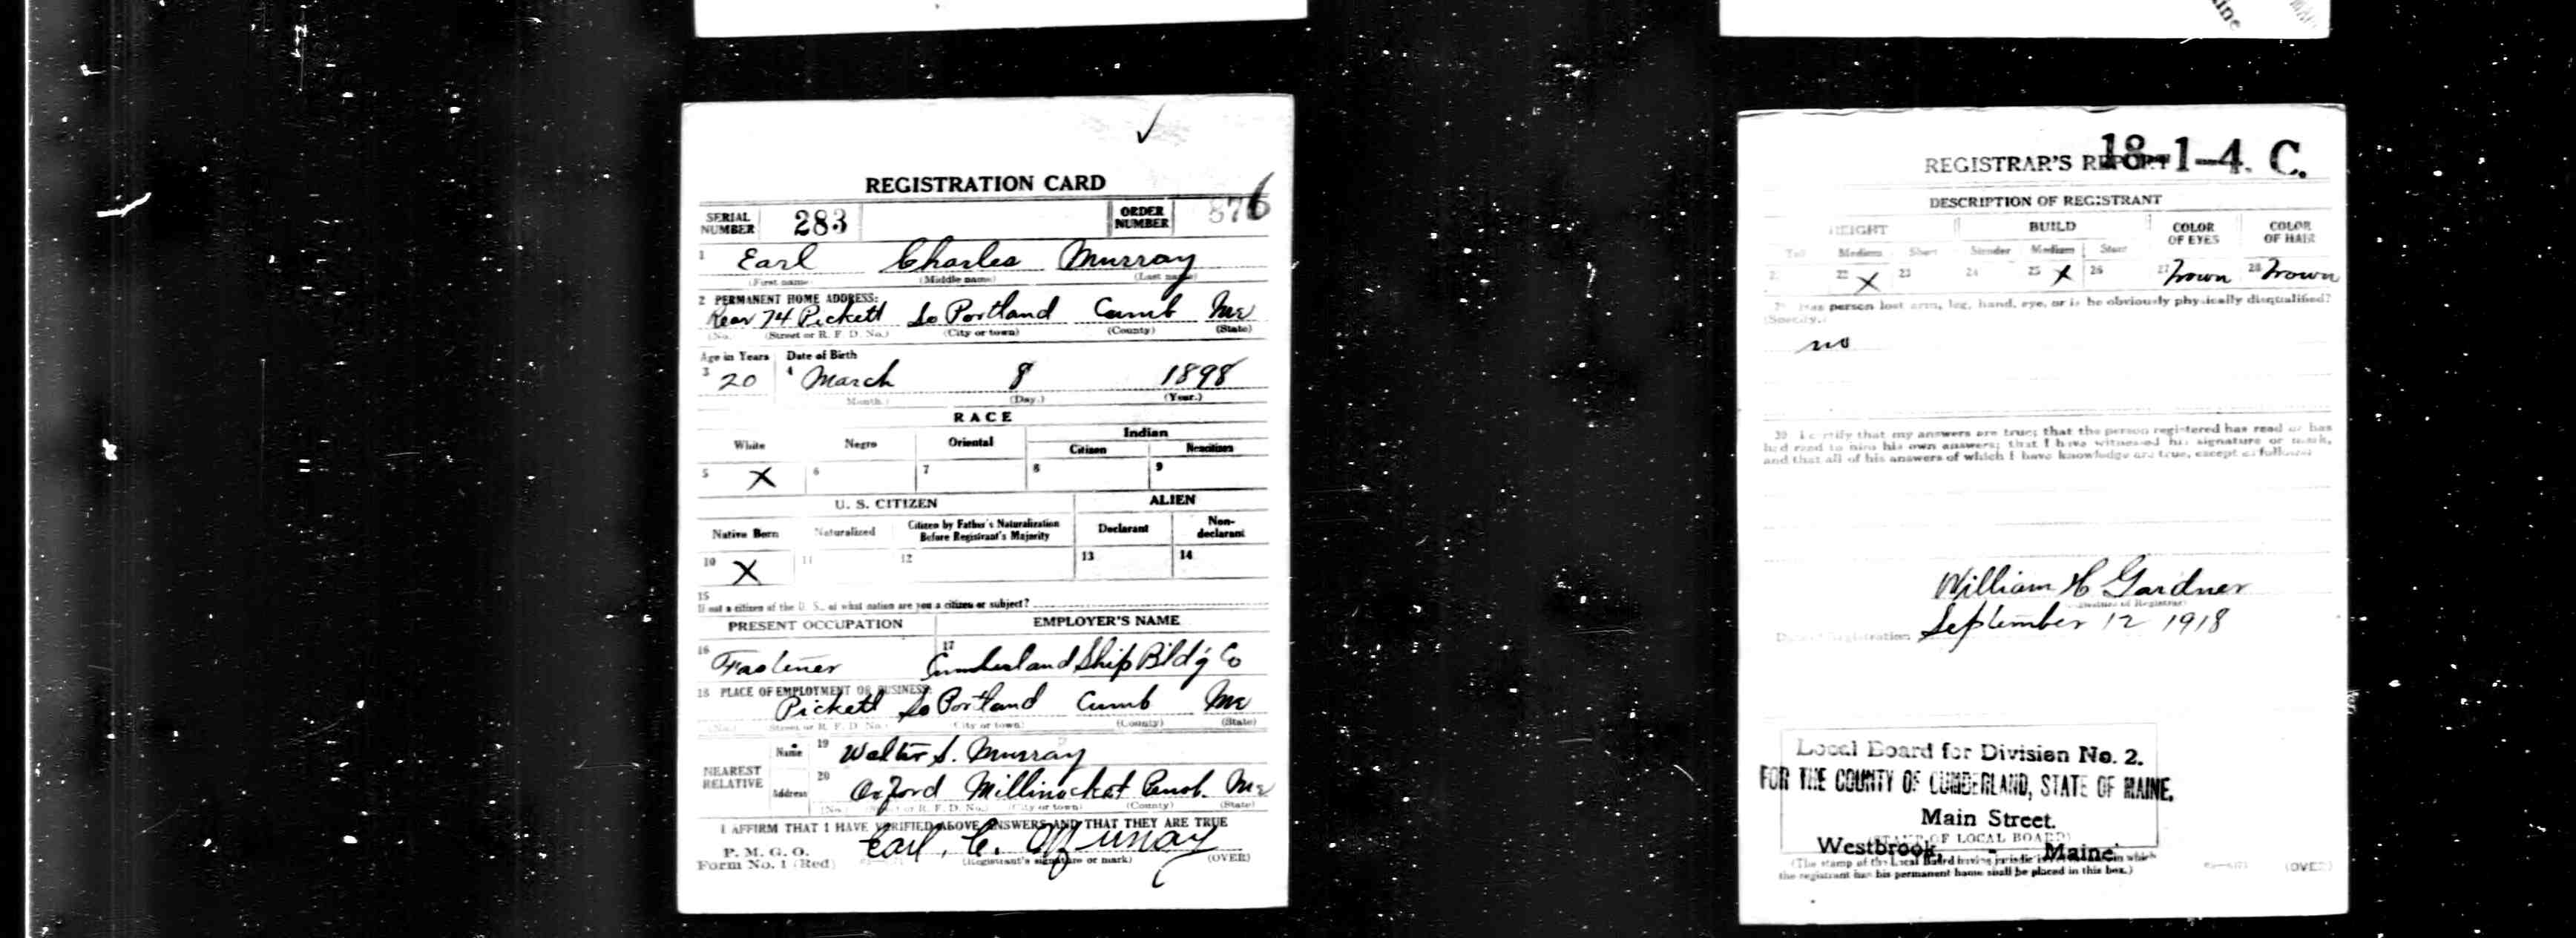 aine
REGISTRATION CARD
SERIAL NUMBER 283 ORDER NUMBER 876
1 Earl Charles Murray
(First name) (Middle name) (Last name)
2 PERMANENT HOME ADDRESS:
Rear 74 Pickett So Portland Cumb Me
(No.) (Street or R. F. D. No.) (City or town) (County) (State)
Age in Years Date of Birth
3 20 4 March 8 1898
Month.) (Day.) (Year.)
RACE
White Negro Oriental Indian
Citizen Noncitizen
5 X 6 7 8 9
U. S. CITIZEN ALIEN
Native Born Naturalized Citizen by Father's Naturalization Before Registrant's Majority Declarant Non-declarant
10 X 11 12 13 14
15
If not a citizen of the U. S., of what nation are you a citizen or subject?
PRESENT OCCUPATION EMPLOYER'S NAME
16 Fastener 17 Cumberland Ship Bld'g Co
18 PLACE OF EMPLOYMENT OR BUSINESS:
Pickett So Portland Cumb Me
(No.) (Street or R. F. D. No.) (City or town) (County) (State)
NEAREST RELATIVE Name 19 Walter S. Murray
Address 20 Oxford Millinocket Penob. Me
(No.) (Street or R. F. D. No.) (City or town) (County) (State)
I AFFIRM THAT I HAVE VERIFIED ABOVE ANSWERS AND THAT THEY ARE TRUE
P. M. G. O.
Form No. 1 (Red) Earl. C. Murray
(Registrant's signature or mark) (OVER)
18-1-4. C.
REGISTRAR'S REPORT
DESCRIPTION OF REGISTRANT
HEIGHT BUILD COLOR OF EYES COLOR OF HAIR
Tall Medium Short Slender Medium Stout
21 22 X 23 24 25 X 26 27 Brown 28 Brown
29 Has person lost arm, leg, hand, eye, or is he obviously physically disqualified?
(Specify.)
no
30 I certify that my answers are true; that the person registered has read or has
had read to him his own answers; that I have witnessed his signature or mark,
and that all of his answers of which I have knowledge are true, except as follows:
William H Gardner
(Signature of Registrar)
Date of Registration September 12 1918
Local Board for Division No. 2.
FOR THE COUNTY OF CUMBERLAND, STATE OF MAINE.
Main Street.
(STAMP OF LOCAL BOARD)
Westbrook - Maine
(The stamp of the Local Board having jurisdiction of the area in which
the registrant has his permanent home shall be placed in this box.)
(OVER)